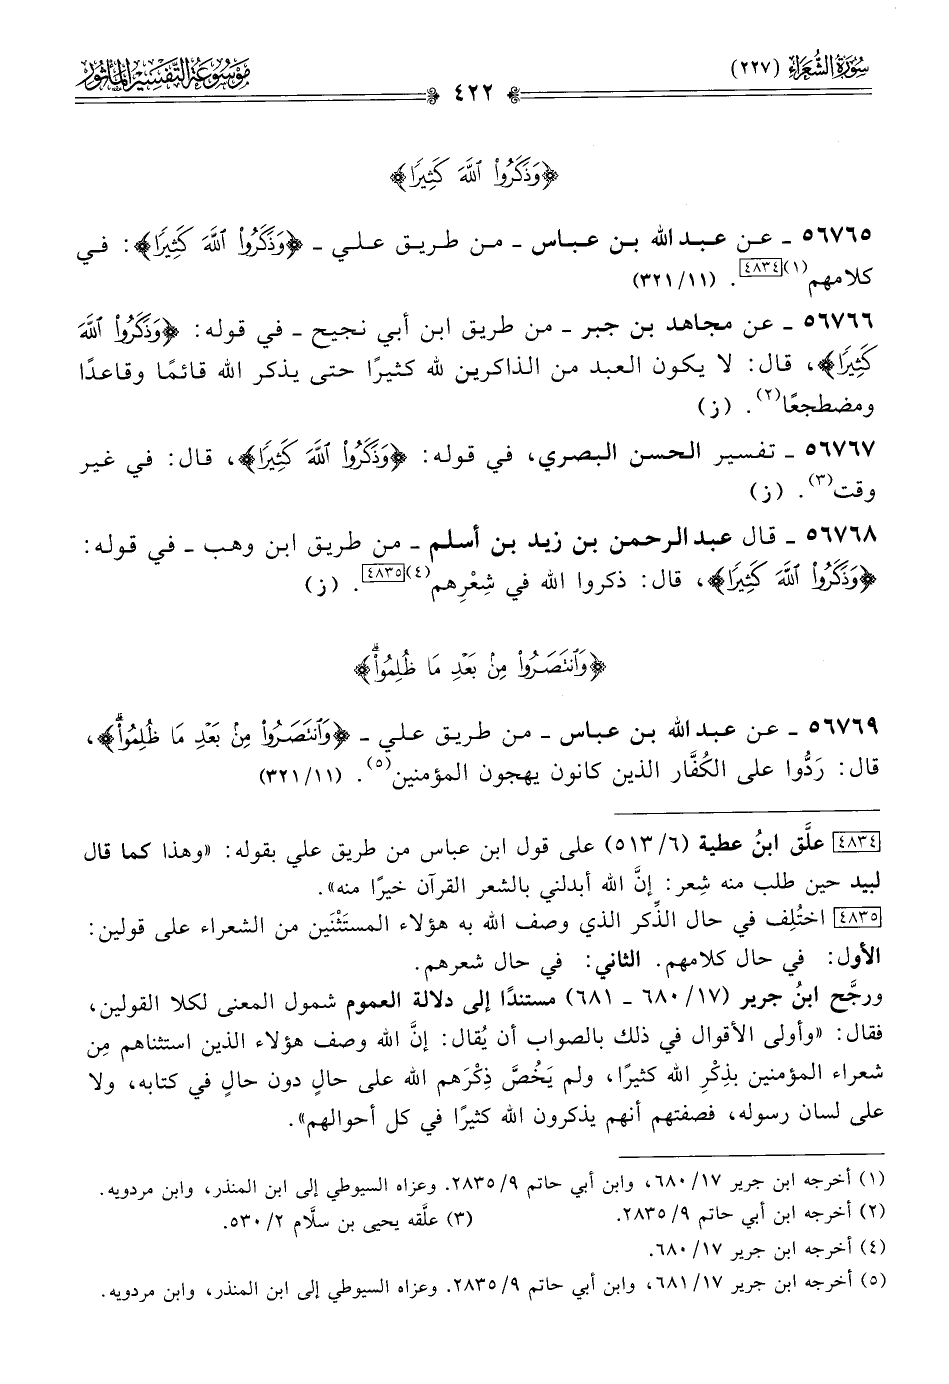 سُورَةُ الشُّعَرَاءِ (٢٢٧)
٤٢٢
مَوْسُوعَةُ التَّفْسِيرِ المَأْثُورِ
﴿وَذَكَرُوا۟ ٱللَّهَ كَثِيرًا﴾
٥٦٧٦٥ ـ عن عبد الله بن عباس ـ من طريق علي ـ ﴿وَذَكَرُوا۟ ٱللَّهَ كَثِيرًا﴾: في
كلامهم(١)[٤٨٣٤]. (٣٢١/١١)
٥٦٧٦٦ ـ عن مجاهد بن جبر ـ من طريق ابن أبي نجيح ـ في قوله: ﴿وَذَكَرُوا۟ ٱللَّهَ
كَثِيرًا﴾، قال: لا يكون العبد من الذاكرين لله كثيرًا حتى يذكر الله قائمًا وقاعدًا
ومضطجعًا(٢). (ز)
٥٦٧٦٧ ـ تفسير الحسن البصري، في قوله: ﴿وَذَكَرُوا۟ ٱللَّهَ كَثِيرًا﴾، قال: في غير
وقت(٣). (ز)
٥٦٧٦٨ ـ قال عبد الرحمن بن زيد بن أسلم ـ من طريق ابن وهب ـ في قوله:
﴿وَذَكَرُوا۟ ٱللَّهَ كَثِيرًا﴾، قال: ذكروا الله في شِعْرِهم(٤)[٤٨٣٥]. (ز)
﴿وَٱنتَصَرُوا۟ مِنۢ بَعْدِ مَا ظُلِمُوا۟ۗ﴾
٥٦٧٦٩ ـ عن عبد الله بن عباس ـ من طريق علي ـ ﴿وَٱنتَصَرُوا۟ مِنۢ بَعْدِ مَا ظُلِمُوا۟ۗ﴾،
قال: رَدُّوا على الكُفَّار الذين كانون يهجون المؤمنين(٥). (٣٢١/١١)
[٤٨٣٤] علَّق ابنُ عطية (٥١٣/٦) على قول ابن عباس من طريق علي بقوله: «وهذا كما قال
لبيد حين طلب منه شِعر: إنَّ الله أبدلني بالشعر القرآن خيرًا منه».
[٤٨٣٥] اختُلِف في حال الذِّكر الذي وصف الله به هؤلاء المستَثْنَين من الشعراء على قولين:
الأول: في حال كلامهم. الثاني: في حال شعرهم.
ورجَّح ابنُ جرير (٦٨٠/١٧ ـ ٦٨١) مستندًا إلى دلالة العموم شمول المعنى لكلا القولين،
فقال: «وأولى الأقوال في ذلك بالصواب أن يُقال: إنَّ الله وصف هؤلاء الذين استثناهم مِن
شعراء المؤمنين بذِكْرِ الله كثيرًا، ولم يَخُصَّ ذِكْرَهم الله على حالٍ دون حالٍ في كتابه، ولا
على لسان رسوله، فصفتهم أنهم يذكرون الله كثيرًا في كل أحوالهم».
(١) أخرجه ابن جرير ٦٨٠/١٧، وابن أبي حاتم ٢٨٣٥/٩. وعزاه السيوطي إلى ابن المنذر، وابن مردويه.
(٢) أخرجه ابن أبي حاتم ٢٨٣٥/٩. (٣) علَّقه يحيى بن سلَّام ٥٣٠/٢.
(٤) أخرجه ابن جرير ٦٨٠/١٧.
(٥) أخرجه ابن جرير ٦٨١/١٧، وابن أبي حاتم ٢٨٣٥/٩. وعزاه السيوطي إلى ابن المنذر، وابن مردويه.